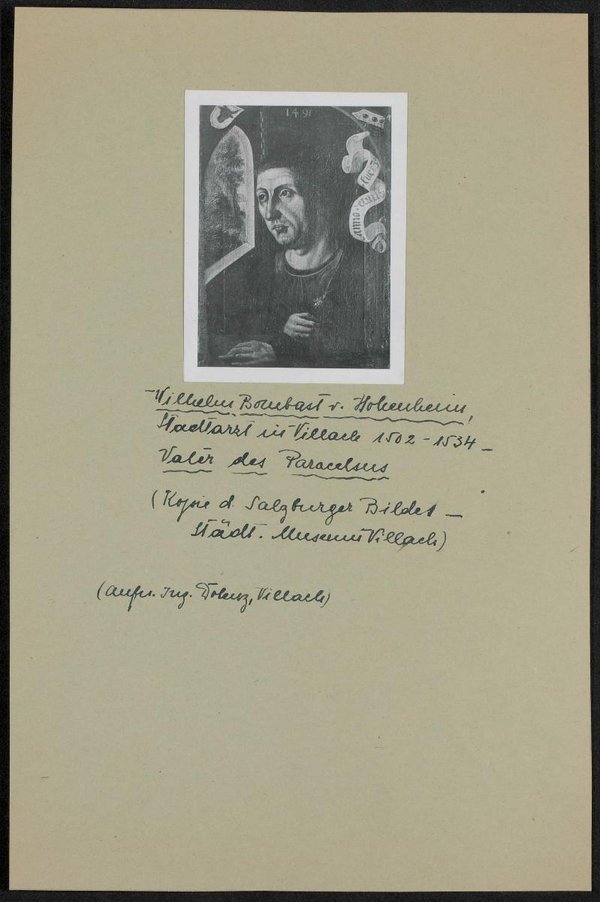 1491
Wilhelm Bombast v. Hohenheim,
Stadtarzt in Villach 1502 - 1534 -
Vater des Paracelsus
(Kopie d. Salzburger Bildes -
Städt. Museum Villach)
(Aufn. Ing. Villach)